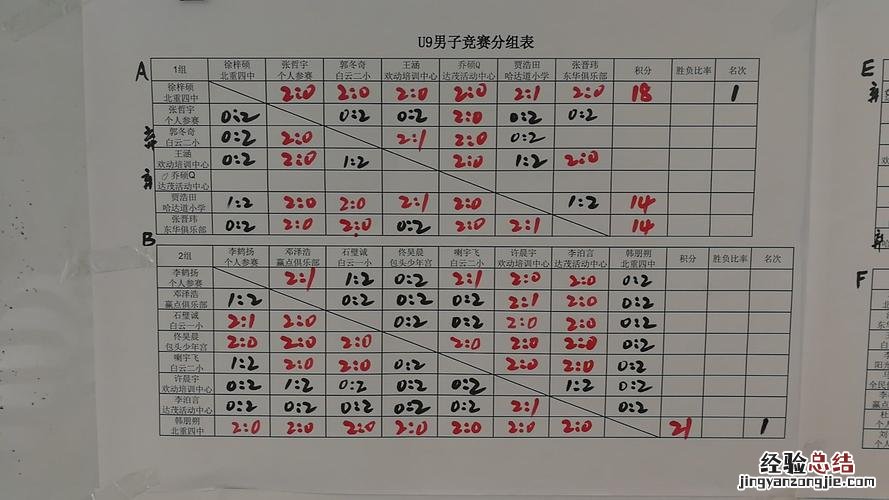 U9男子竞赛分组表
A
E
1组 徐梓硕 北重四中 张哲宇 个人参赛 郭冬奇 白云二小 王涵 欢动培训中心 乔硕Q 达茂活动中心 贾浩田 哈达道小学 张晋玮 东华俱乐部 积分 胜负比率 名次
徐梓硕 北重四中 2:0 2:0 2:0 2:0 2:1 2:0 18 1
张哲宇 个人参赛 0:2 0:2 0:2 2:0 0:2 0:2
弃 郭冬奇 白云二小 0:2 2:0 2:1 2:0 0:2
王涵 欢动培训中心 0:2 2:0 1:2 2:0 1:2 2:0
弃 乔硕Q 达茂活动中心
贾浩田 哈达道小学 1:2 2:0 2:0 2:1 2:0 1:2 14
张晋玮 东华俱乐部 0:2 2:0 2:0 0:2 2:0 2:1 14
B
F
2组 李鹤扬 个人参赛 邓泽浩 赢点俱乐部 石璧诚 白云一小 佟昊晨 包头少年宫 喇宇飞 白云二小 许晨宇 欢动培训中心 李泊言 达茂活动中心 韩朋朔 北重四中 积分 胜负比率 名次
李鹤扬 个人参赛 2:1 1:2 0:2 2:1 2:0 2:0 0:2
邓泽浩 赢点俱乐部 1:2 0:2 0:2 0:2 2:1 2:0 0:2
石璧诚 白云一小 2:1 2:0 0:2 0:2 2:0 2:0 0:2
佟昊晨 包头少年宫 2:0 2:0 2:0 2:0 2:0 2:0 0:2
喇宇飞 白云二小 1:2 2:0 2:0 0:2 2:0 2:0 0:2
许晨宇 欢动培训中心 0:2 1:2 0:2 0:2 0:2 1:2 0:2
李泊言 达茂活动中心 0:2 0:2 0:2 0:2 0:2 2:1 0:2
韩朋朔 北重四中 2:0 2:0 2:0 2:0 2:0 2:0 2:0 21 1
经验总结
jingyanzongjie.com